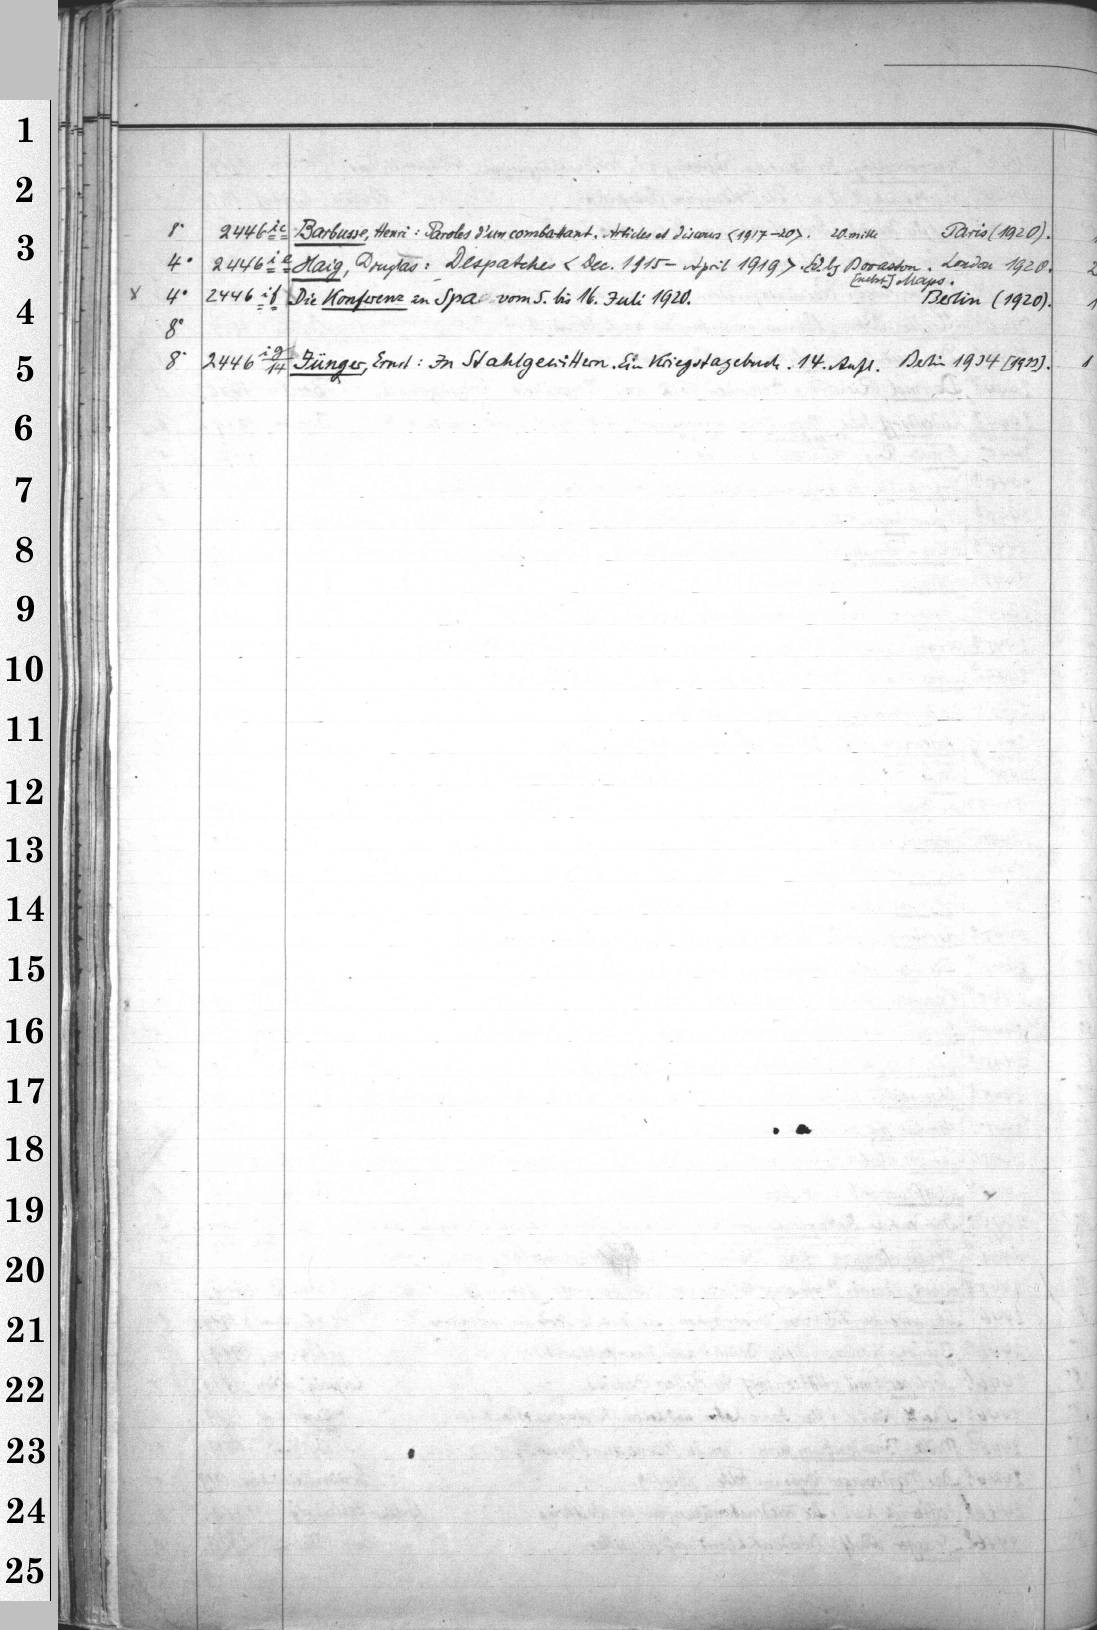 1
2
3
8° 2446 ic Barbusse, Henri: Paroles d'un combattant. Articles et discours <1917-20>. 20. mille Paris (1920).
4° 2446 ie Haig, Douglas: Despatches <Dec. 1915- April 1919> Ed. by Boraston. London 1920.
[nebst] Maps.
4
x 4° 2446 if Die Konferenz zu Spa vom 5. bis 16. Juli 1920. Berlin (1920).
8°
5
8° 2446 ig/14 Jünger, Ernst: In Stahlgewittern. Ein Kriegstagebuch. 14. Aufl. Berlin 1934 [1933].
6
7
8
9
10
11
12
13
14
15
16
17
18
19
20
21
22
23
24
25